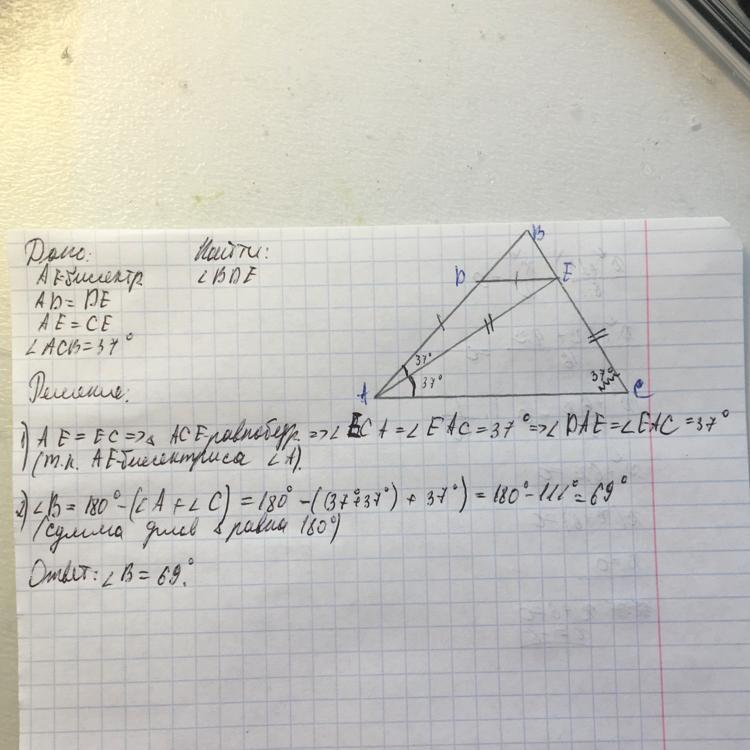 Дано: Найти:
AE-биссектр ∠BDE
AD = DE
AE = CE
∠ACB = 37°
Решение:
1) AE = EC => △ ACE-равнобедр. => ∠ECA = ∠EAC = 37° => ∠DAE = ∠EAC = 37°
(т.к. AE-биссектриса ∠A).
2) ∠B = 180° - (∠A + ∠C) = 180° - ((37°+37°) + 37°) = 180° - 111° = 69°
(сумма углов △ равна 180°)
Ответ: ∠B = 69°.
B
D
E
37°
37°
37°
A
C